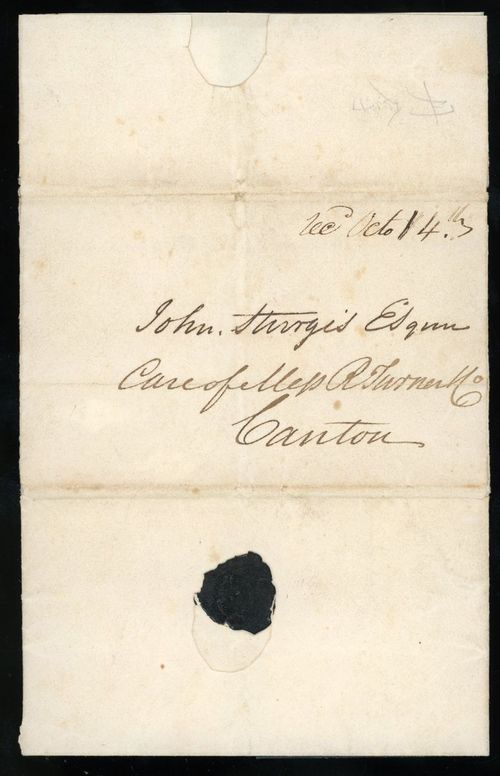 Rec^d Octo 14.^th
John. Sturgis Esqur
Care of Mess R Turner & Co
Canton